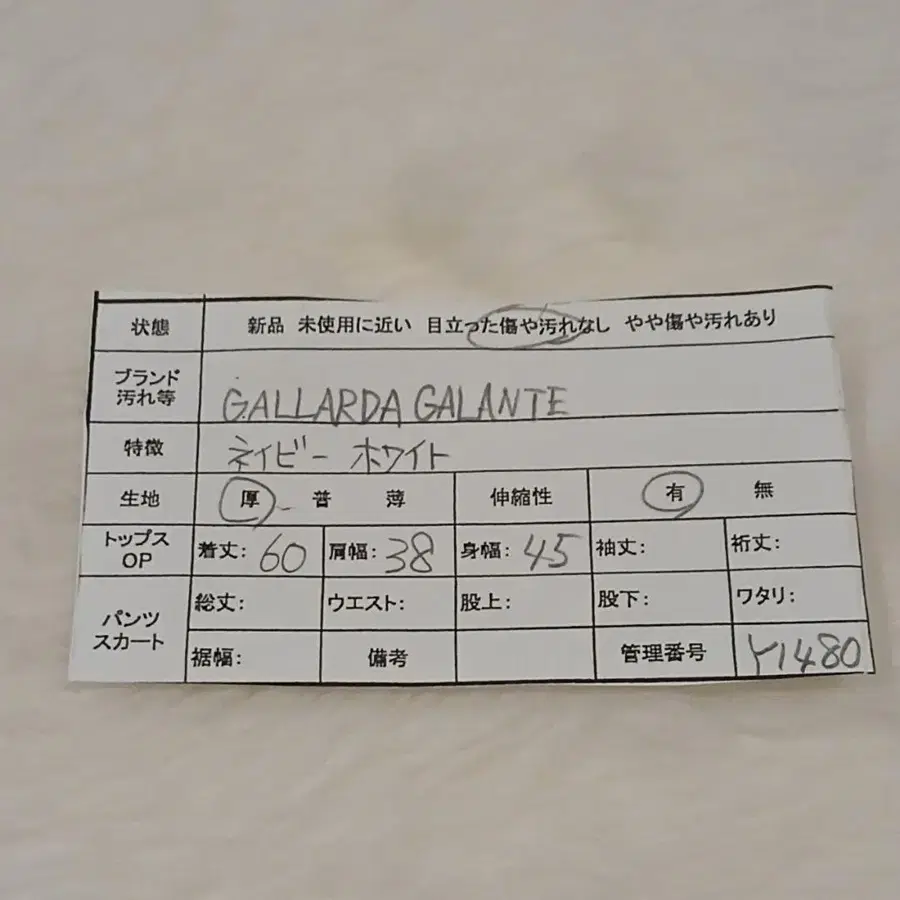 状態 新品 未使用に近い 目立った傷や汚れなし やや傷や汚れあり
ブランド
汚れ等
GALLARDAGALANTE
特徴 ネイビー ホワイト
生地 厚 普 薄 伸縮性 有 無
トップス
OP
着丈: 60 肩幅: 38 身幅: 45 袖丈: 裄丈:
パンツ
スカート
総丈: ウエスト: 股上: 股下: ワタリ:
裾幅: 備考 管理番号 Y1480